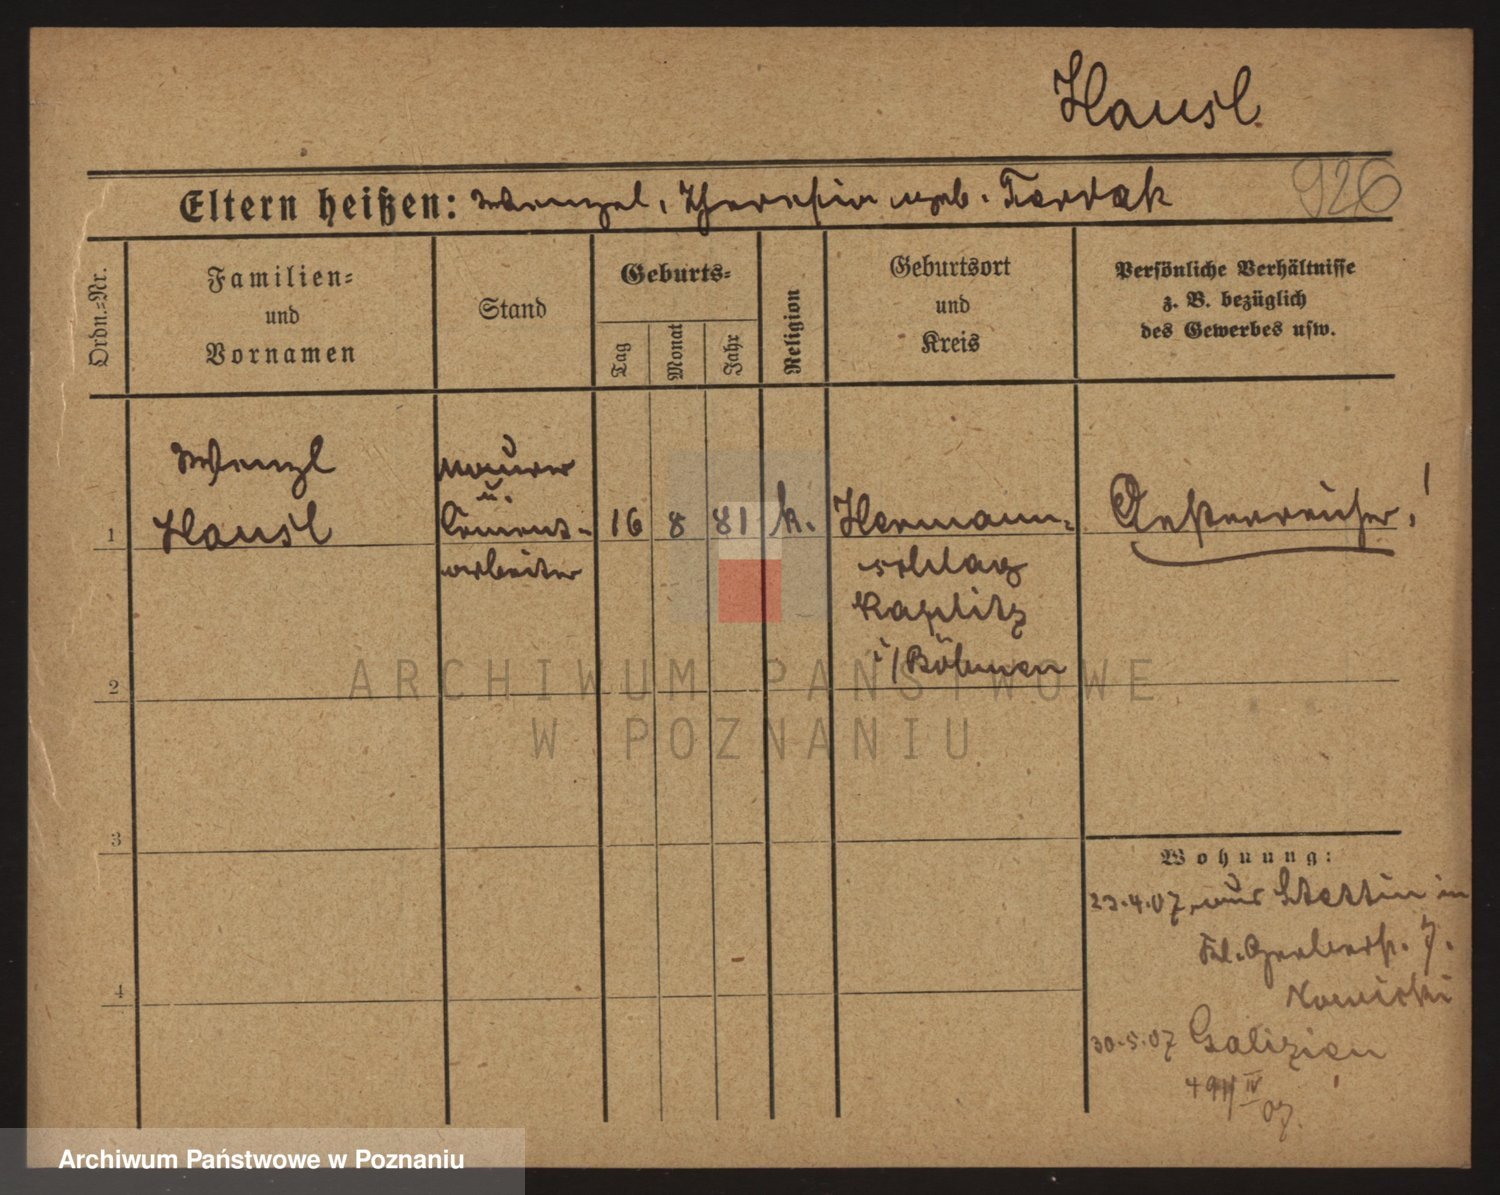 Hausl
926
Eltern heißen: Wenzel, Theresia geb. Terrak
Ordn.-Nr.
Familien-
und
Vornamen
Stand
Geburts-
Tag
Monat
Jahr
Religion
Geburtsort
und
Kreis
Persönliche Verhältnisse
z. B. bezüglich
des Gewerbes usw.
1
Wenzl
Hausl
Maurer
u.
Cement-
arbeiter
16 8 81 k.
Hermann-
schlag
Kaplitz
i/Böhmen
Oesterreicher!
2
3
4
Wohnung:
23.4.07 aus Stettin in
Kl. Gerberstr. 7.
Nowicki
30.5.07 Galizien
IV
07.
ARCHIWUM PAŃSTWOWE
W POZNANIU
Archiwum Państwowe w Poznaniu